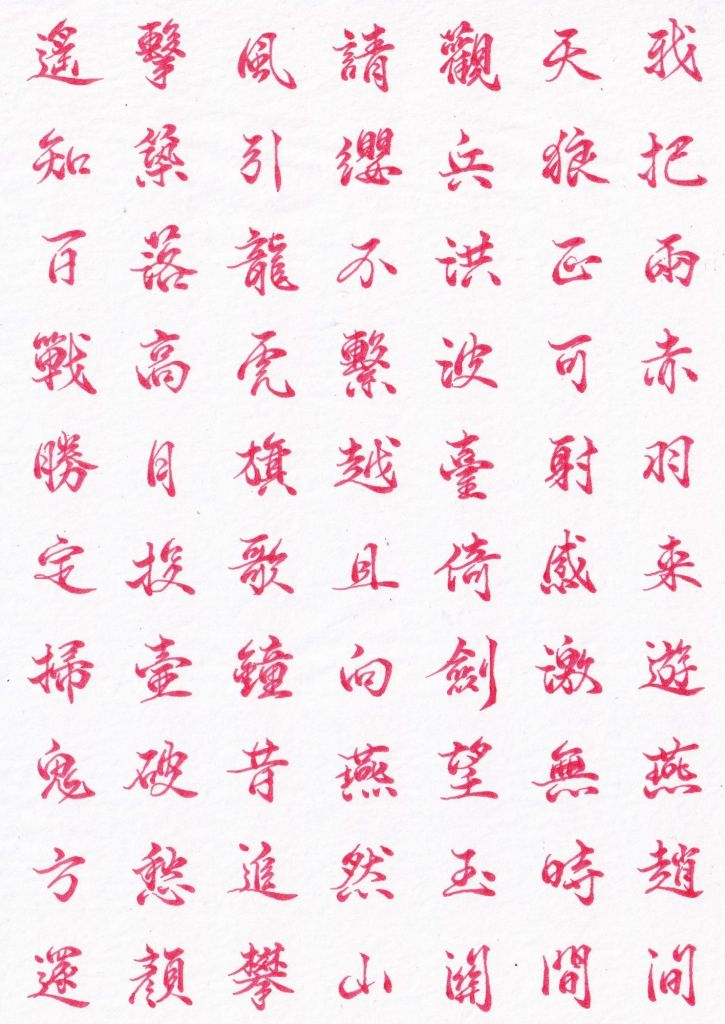 我把兩赤羽来遊燕趙間
天狼正可射感激無時間
觀兵洪波臺倚劍望玉關
請纓不繫越且向燕然山
風引龍虎旗歌鐘昔追攀
擊築落高月投壺破愁顏
遙知百戰勝定掃鬼方還